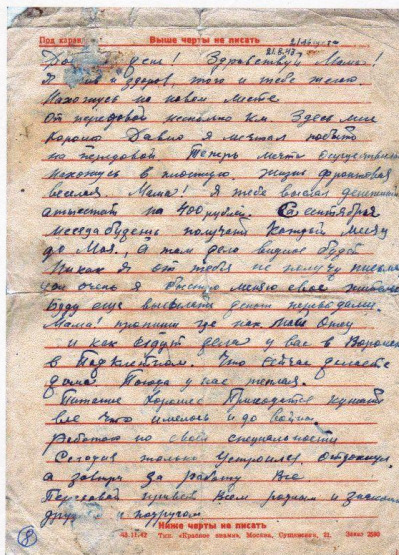 Под каран Выше черты не писать 21 августа
21.8.43
день! Здравствуй Мама!
Я жив и здоров, того и тебе желаю
Нахожусь на новом месте
От передовой несколько км. Здесь мне
хорошо Давно я мечтал побыть
на передовой. Теперь мечта осуществи
нахожусь в жизнь фронтовая
веселая. Мама! Я тебе выслал денежный
атестат на 400 рублей. С сентября
месяца будешь получать каждый месяц
до Мая, а там дело видное будет
Ни как я от тебя не получу письма
уж очень я быстро меняю свое
Буду еще высылать деньги переводами.
Мама! пропиши где
и как идут дела у вас в Воронеж
в Подклетном. Что сейчас делаете
дома. Погода у нас теплая.
Питание хорошее Приходится кушать
все что имелось и до войны
Работаю по своей специальности
Сегодня только устроился. Отдохнул,
а завтра за работу Все
Передавай привет всем родным и знаком
друз и подругам
Ниже черты не писать
8
43.11.42 Тип. «Красное знамя», Москва, Сущевская, 21. Заказ 2580